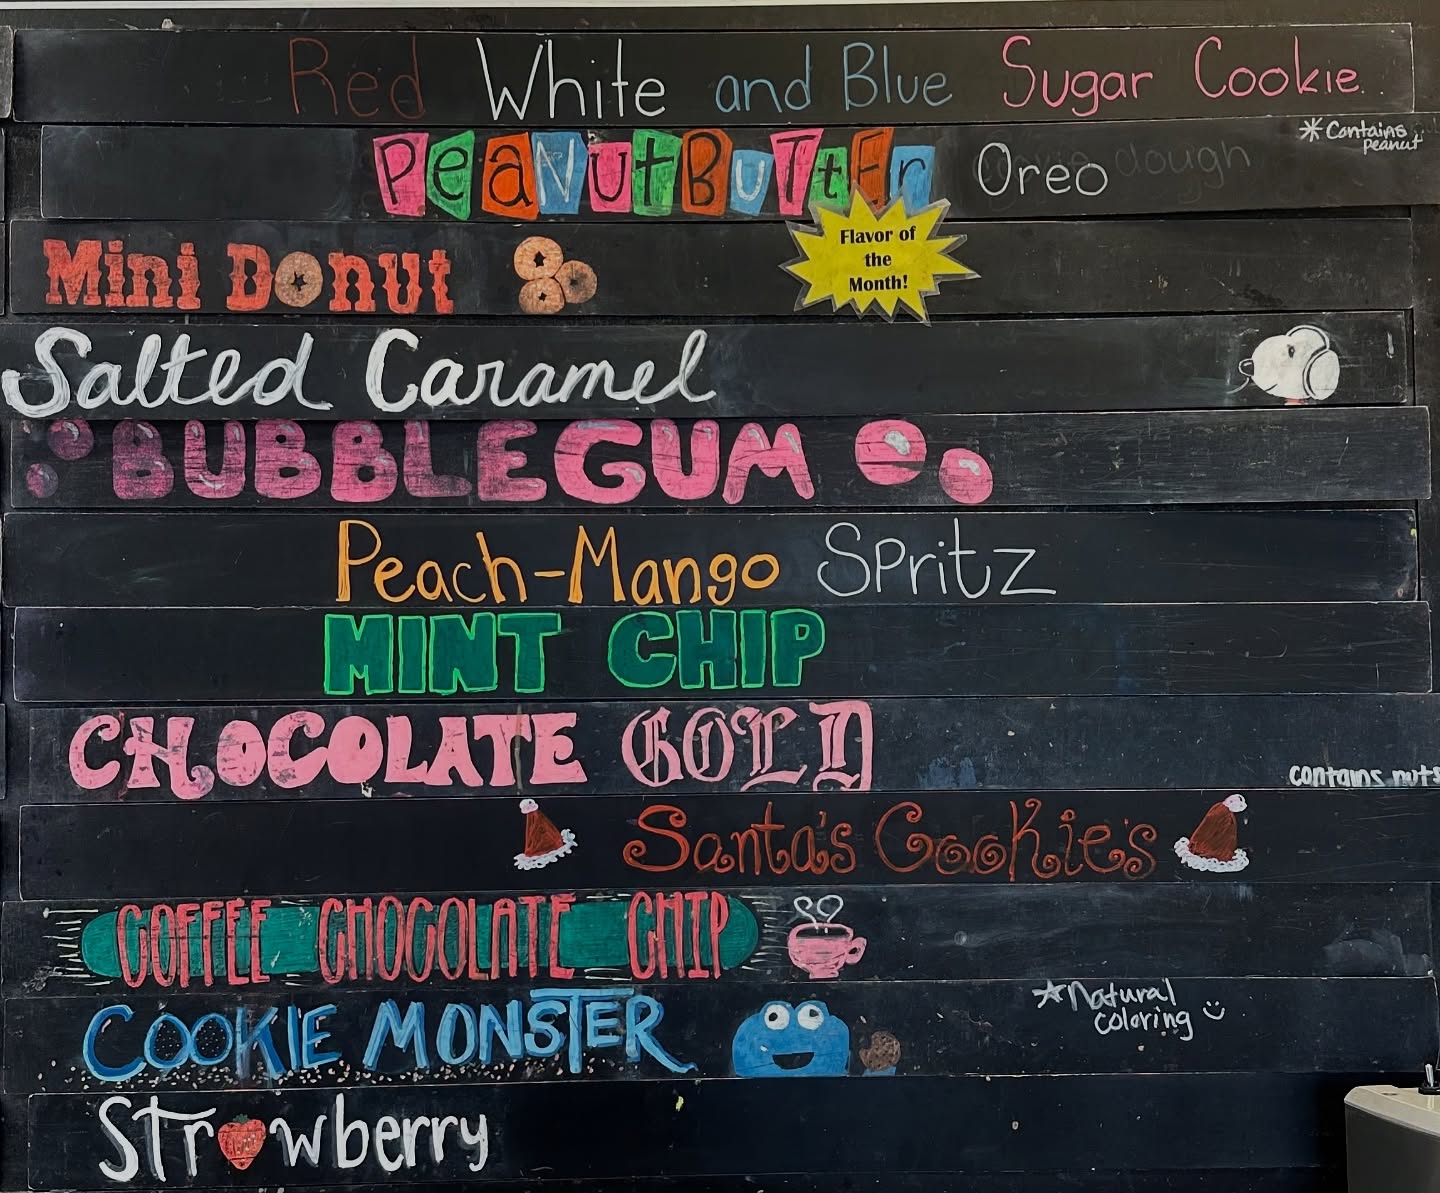 Red White and Blue Sugar Cookie
PEANUTBUTTEr Oreo
*Contains
peanut
Mini Donut
Flavor of
the
Month!
Salted Caramel
BUBBLEGUM
Peach-Mango Spritz
MINT CHIP
CHOCOLATE GOLD
contains nuts
Santa's Cookie's
COFFEE CHOCOLATE CHIP
COOKIE MONSTER
*Natural
coloring
Strawberry